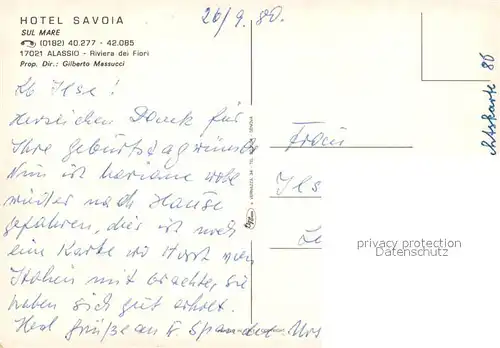 HOTEL SAVOIA
SUL MARE
(0182) 40.277 - 42.085
17021 ALASSIO - Riviera dei Fiori
Prop. Dir.: Gilberto Massucci
26/9. 80.
Lb Ilse!
Herzlichen Dank für
Ihre Geburtstagwünsche
Nun ist Mariane wohl
wieder nach Hause
gefahren, dies ist noch
eine Karte wo Horst von
Italien mit brachte, sie
haben sich gut erholt.
Herzl Grüße an
Frau
Ils
80
privacy protection
Datenschutz